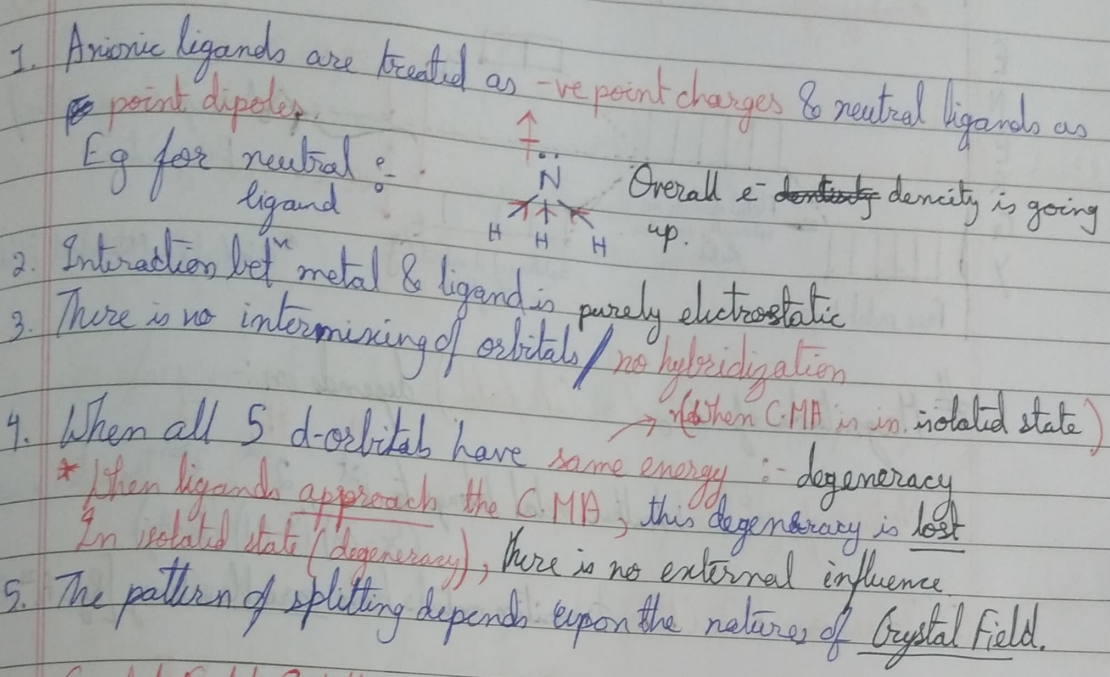 1. Anionic ligands are treated as -ve point charges & neutral ligands as
point dipoles.
Eg for neutral :-
ligand
N
H H H
Overall e- dencity is going
up.
2. Interaction betn metal & ligand is purely electrostatic
3. There is no intermixing of orbitals / no hybridization
→ (When C.MA is in isolated state)
4. When all 5 d-orbitals have same energy :- degeneracy
* When ligands approach the C.MA, this degeneracy is lost
In isolated state (degeneracy), there is no external influence.
5. The pattern of splitting depends upon the natures of Crystal Field.